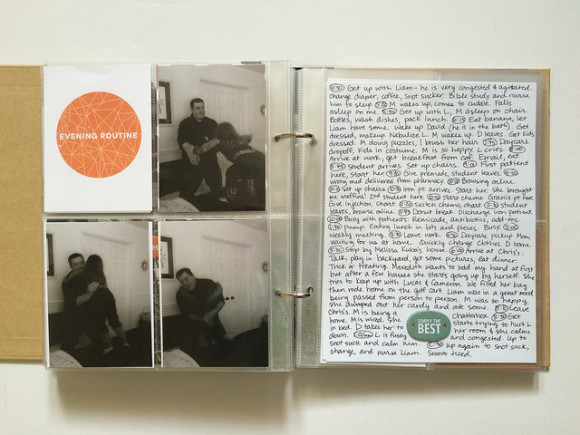 EVENING ROUTINE
4:30 Get up with Liam - he is very congested & agitated.
change diaper, coffee, snot sucker. Bible study and nurse
him to sleep. M wakes up, comes to cuddle. Falls
asleep on me. Get up with L, M asleep on chair.
Bottles, wash dishes, pack lunch. Eat banana, let
Liam have some. Wake up David (he is in the bath). Get
dressed, makeup. Nebulize L. M wakes up. D leaves. Get kids
dressed. M doing puzzles, I brush her hair. Daycare
dropoff. Kids in costume. M is so happy, L cries.
Arrive at work, get breakfast from caf. Email, eat
Student arrives. Set up chairs. First patient
here, start her. Give premeds, student leaves.
wrong med delivered from pharmacy. Browsing online.
Set up chairs. Iron pt arrives. Start her. She brought
me muffins! 2nd student here. Start chemo. Gravix pt here.
Give injection, chart. Switch chemo, chart. Student
leaves, browse online. Donut break. Discharge iron patient.
Busy with patients: Remicade, antibiotics, add-ons.
Pump. Eating lunch in bits and pieces. Busy.
Weekly meeting. Leave work. Daycare pickup. Mom
waiting for us at home. Quickly change clothes. D home.
Stop by Melissa Kuba's house. Arrive at Chris's.
Talk, play in backyard, get some pictures, eat dinner.
Trick or treating. Meredith wants to hold my hand at first
but after a few houses she starts going up by herself. She
tries to keep up with Lucas & Cameron. We filled her bag
then rode home on the golf cart. Liam was in a great mood
being passed from person to person. M was so happy,
she dumped out her candy and ate some. Leave
Chris's. M is being a chatterbox. Get
home. M is wired. She starts trying to hurt L
in bed. D takes her to her room & she calms
down. L is fussy and congested. Up to
snot suck and calm him. up again to snot suck,
change, and nurse Liam. Soooo tired.
SIMPLY THE
BEST